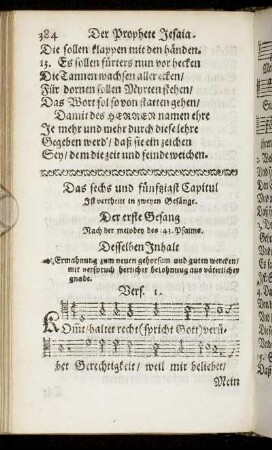 384 Der Prophete Jesaia.
Die sollen klappen mit den händen.
13. Es sollen fürters nun vor hecken
Die Tannen wachsen aller ecken/
Für dornen sollen Myrten stehen/
Das Wort sol so von statten gehen/
Damit des HERREN namen ehre
Je mehr und mehr durch diese lehre
Gegeben werd/ daß sie ein zeichen
Sey/ dem die zeit und feinde weichen.
Das sechs und fünftzigst Capitul
Ist vertheilt in zweyen Gesänge.
Der erste Gesang
Nach der melodey des 43. Psalms.
Desselben Inhalt
Ermahnung zum neuen gehorsam und guten wercken/
mit verspruch herlicher belohnung aus väterlicher
gnade.
Vers. 1.
KOmt/ haltet recht (spricht Gott) verü-
bet Gerechtigkeit/ weil mir beliebet/
Mein